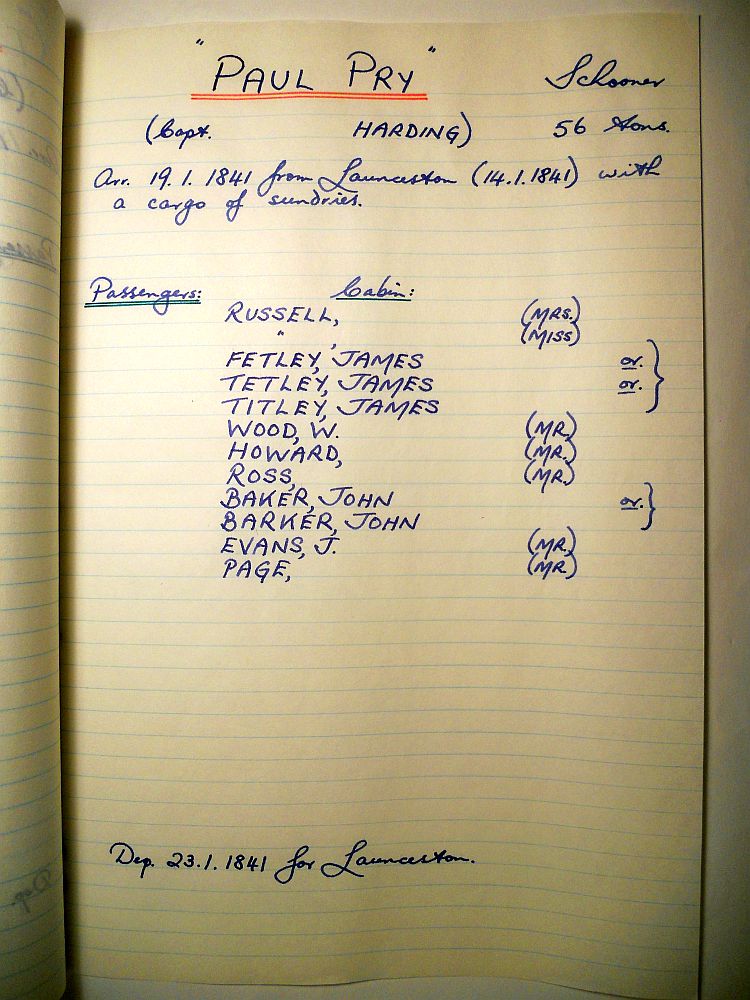 "PAUL PRY" Schooner
(Capt. HARDING) 56 tons.
Arr. 19.1.1841 from Launceston (14.1.1841) with
a cargo of sundries.
Passengers: Cabin:
RUSSELL, (MRS.)
" , (MISS)
FETLEY, JAMES or. }
TETLEY, JAMES or.
TITLEY, JAMES
WOOD, W. (MR.)
HOWARD, (MR.)
ROSS, (MR.)
BAKER, JOHN or. }
BARKER, JOHN
EVANS, J. (MR.)
PAGE, (MR.)
Dep. 23.1.1841 for Launceston.